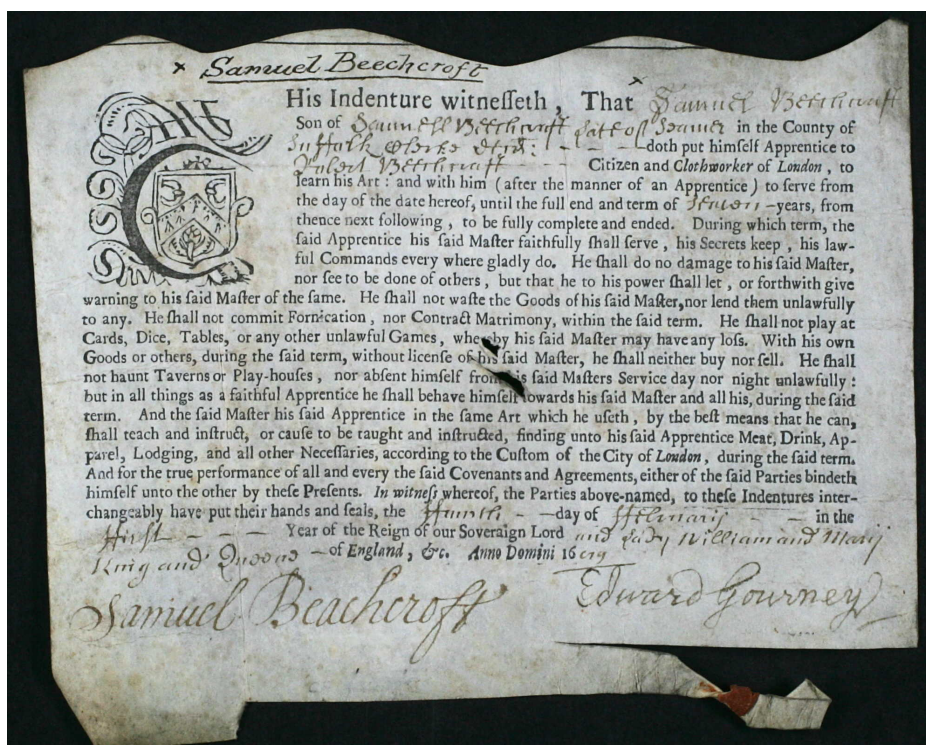 × Samuel Beechcroft
THis Indenture witneſſeth, That Samuel Beechcraft
Son of Samuell Beechcroft late of Seamer in the County of
Suffolk Clerke decd: – – – doth put himſelf Apprentice to
Robert Beechcraft Citizen and Clothworker of London, to
learn his Art: and with him (after the manner of an Apprentice) to ſerve from
the day of the date hereof, until the full end and term of Seaven – years, from
thence next following, to be fully complete and ended. During which term, the
ſaid Apprentice his ſaid Maſter faithfully ſhall ſerve, his Secrets keep, his law-
ful Commands every where gladly do. He ſhall do no damage to his ſaid Maſter,
nor ſee to be done of others, but that he to his power ſhall let, or forthwith give
warning to his ſaid Maſter of the ſame. He ſhall not waſte the Goods of his ſaid Maſter, nor lend them unlawfully
to any. He ſhall not commit Fornication, nor Contract Matrimony, within the ſaid term. He ſhall not play at
Cards, Dice, Tables, or any other unlawful Games, whereby his ſaid Maſter may have any loſs. With his own
Goods or others, during the ſaid term, without license of his ſaid Maſter, he ſhall neither buy nor ſell. He ſhall
not haunt Taverns or Play-houſes, nor abſent himſelf from his ſaid Maſters Service day nor night unlawfully:
but in all things as a faithful Apprentice he ſhall behave himſelf towards his ſaid Maſter and all his, during the ſaid
term. And the ſaid Maſter his ſaid Apprentice in the ſame Art which he uſeth, by the beſt means that he can,
ſhall teach and inſtruct, or cauſe to be taught and inſtructed, finding unto his ſaid Apprentice Meat, Drink, Ap-
parel, Lodging, and all other Neceſſaries, according to the Cuſtom of the City of London, during the ſaid term.
And for the true performance of all and every the ſaid Covenants and Agreements, either of the ſaid Parties bindeth
himſelf unto the other by theſe Preſents. In witneſs whereof, the Parties above-named, to theſe Indentures inter-
changeably have put their hands and ſeals, the – – day of February – – in the
First – – – Year of the Reign of our Soveraign Lord and Lady William and Mary
King and Queene – of England, &c. Anno Domini 1689
Samuel Beachcroft Edward Gourney